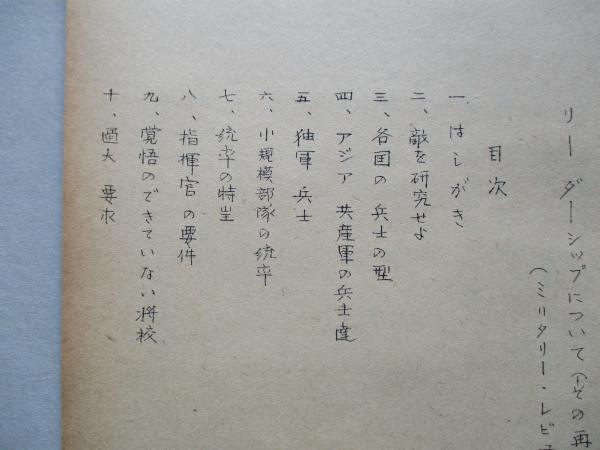 リーダーシップについて(その再
(ミリタリー・レビュ
目次
一、はしがき
二、敵を研究せよ
三、各国の兵士の型
四、アジア共産軍の兵士達
五、独軍兵士
六、小規模部隊の統率
七、統率の特質
八、指揮官の要件
九、覚悟のできていない将校
十、過大要求